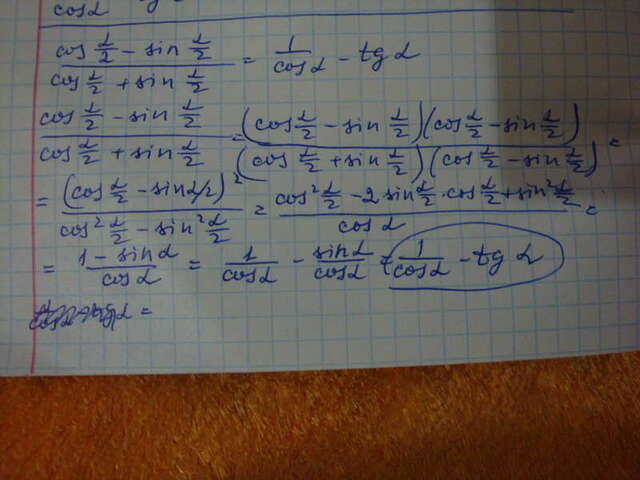 cos α
(cos α/2 - sin α/2)/(cos α/2 + sin α/2) = 1/cos α - tg α
(cos α/2 - sin α/2)/(cos α/2 + sin α/2) = ((cos α/2 - sin α/2)(cos α/2 - sin α/2))/((cos α/2 + sin α/2)(cos α/2 - sin α/2)) =
= (cos α/2 - sin α/2)²/(cos² α/2 - sin² α/2) = (cos² α/2 - 2 sin α/2 · cos α/2 + sin² α/2)/cos α =
= (1 - sin α)/cos α = 1/cos α - sin α/cos α = 1/cos α - tg α